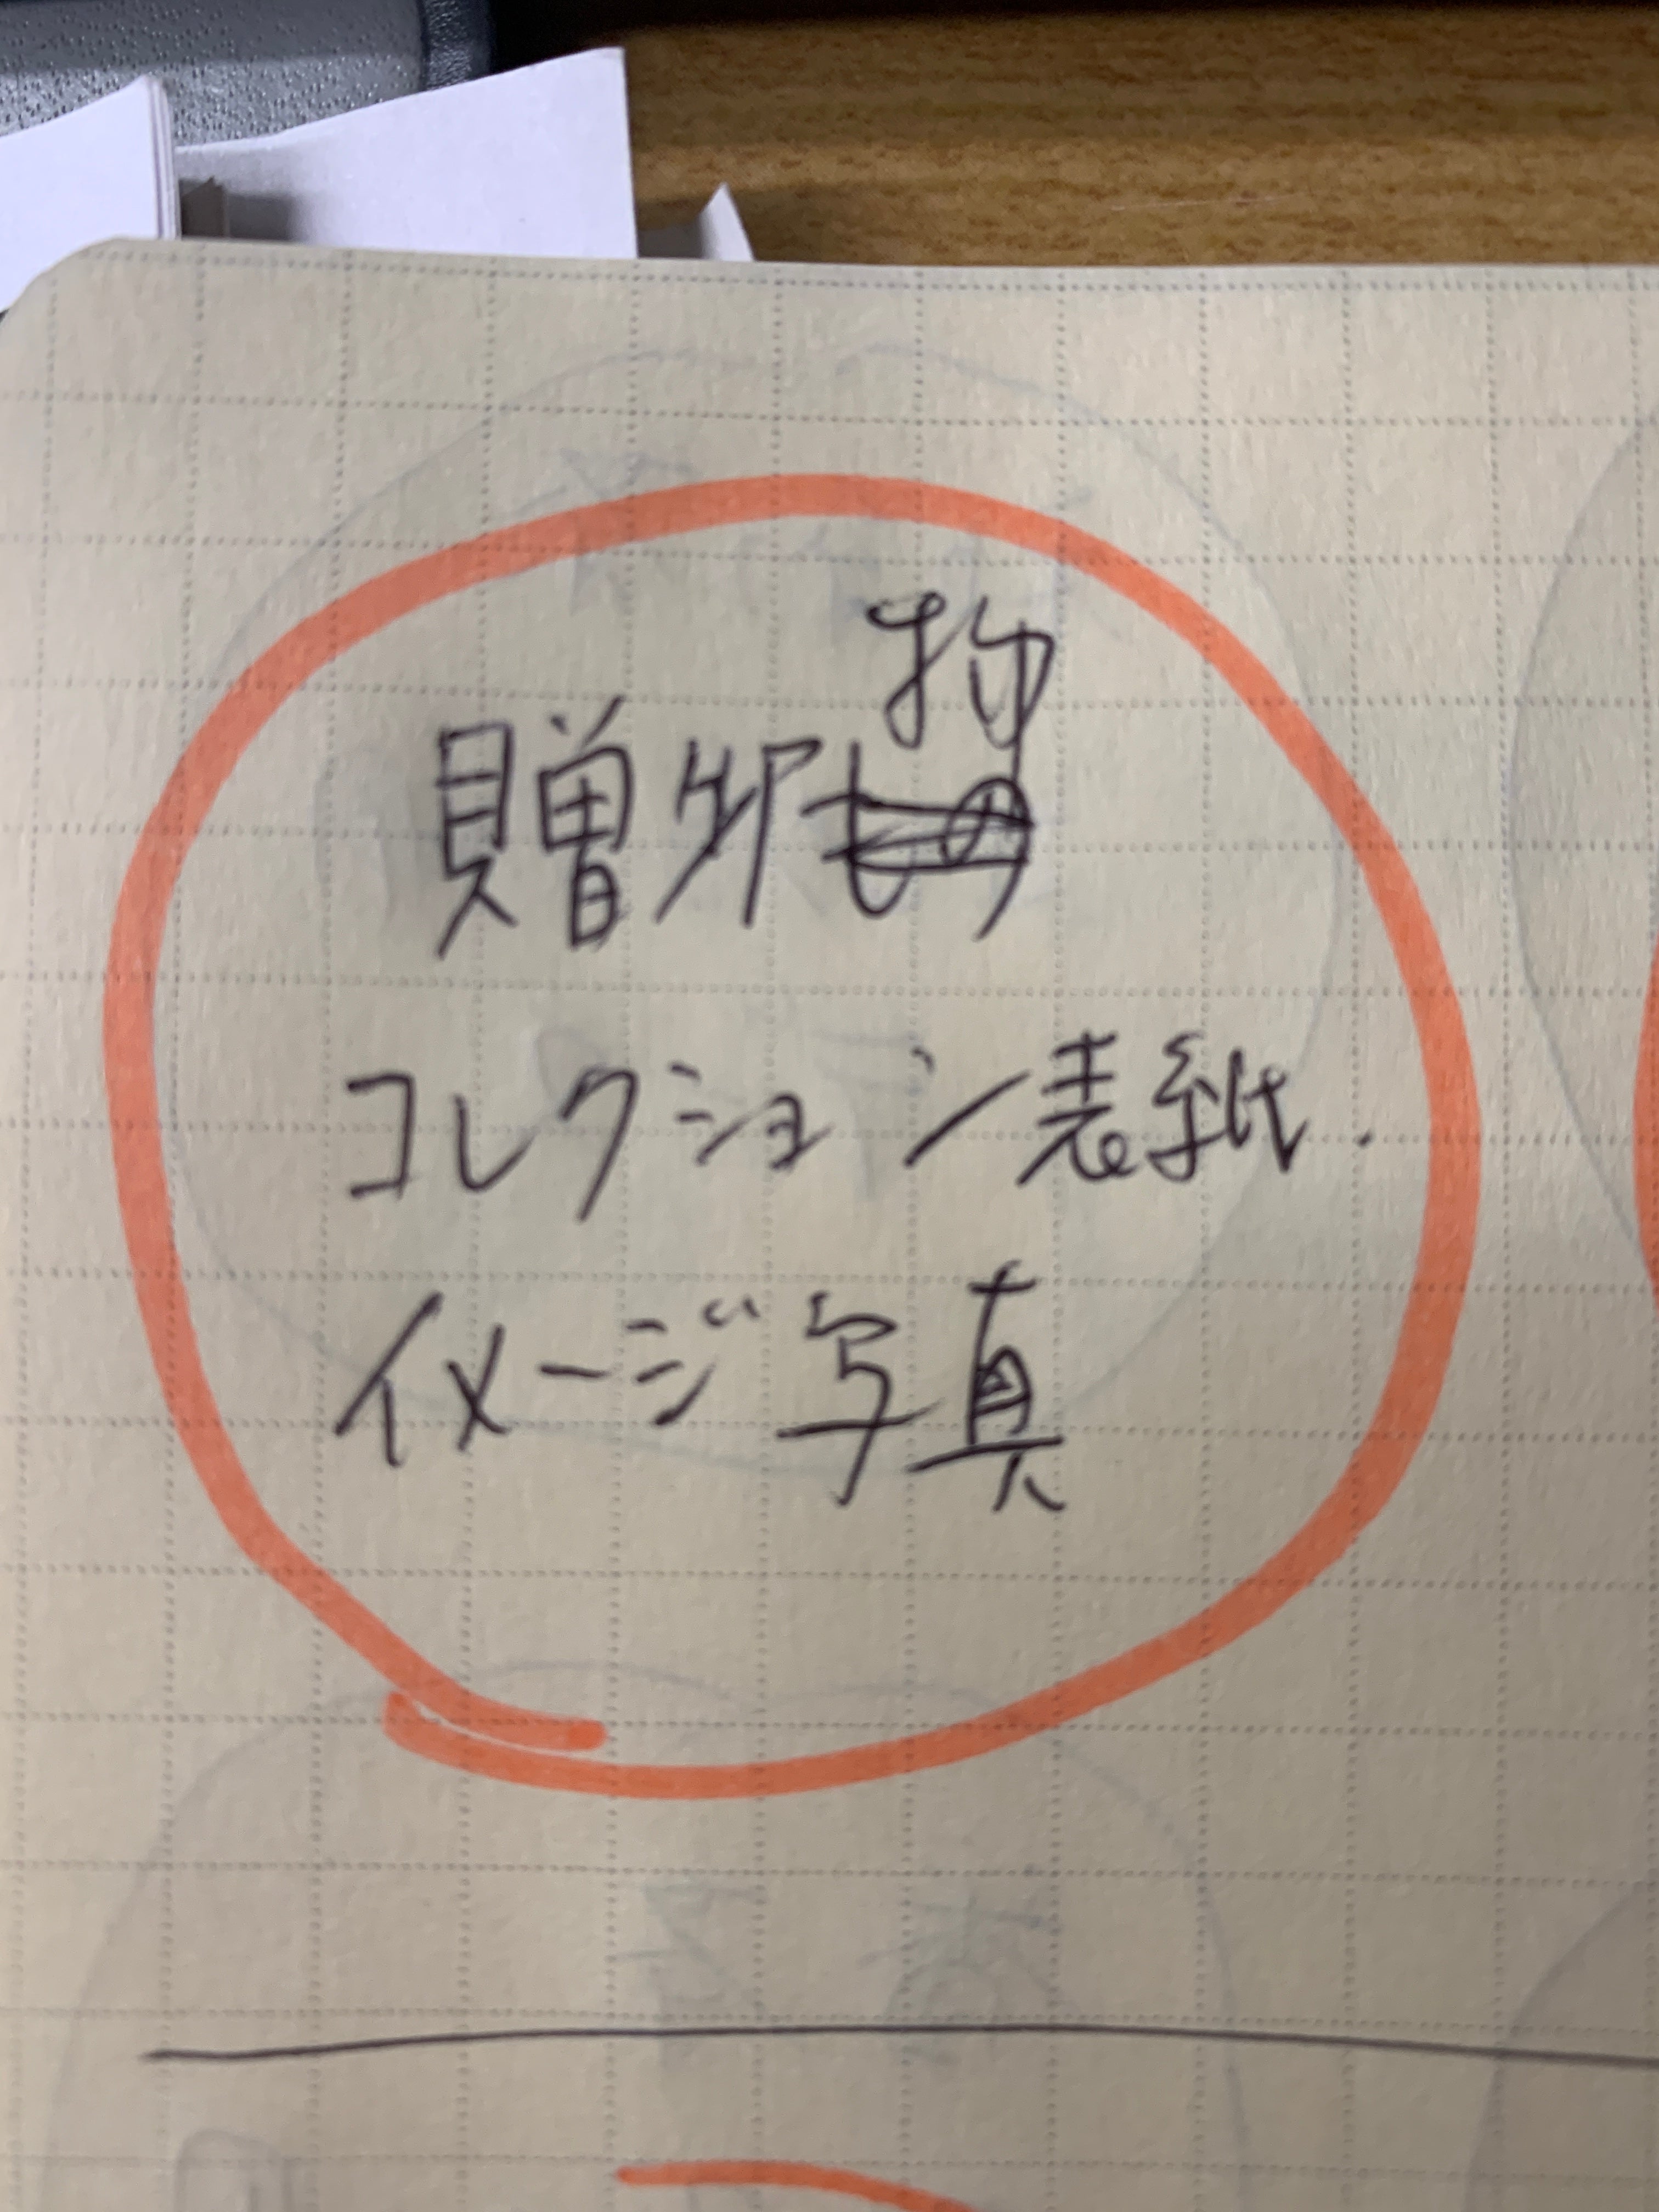 物
贈
コレクション表紙.
イメージ写真